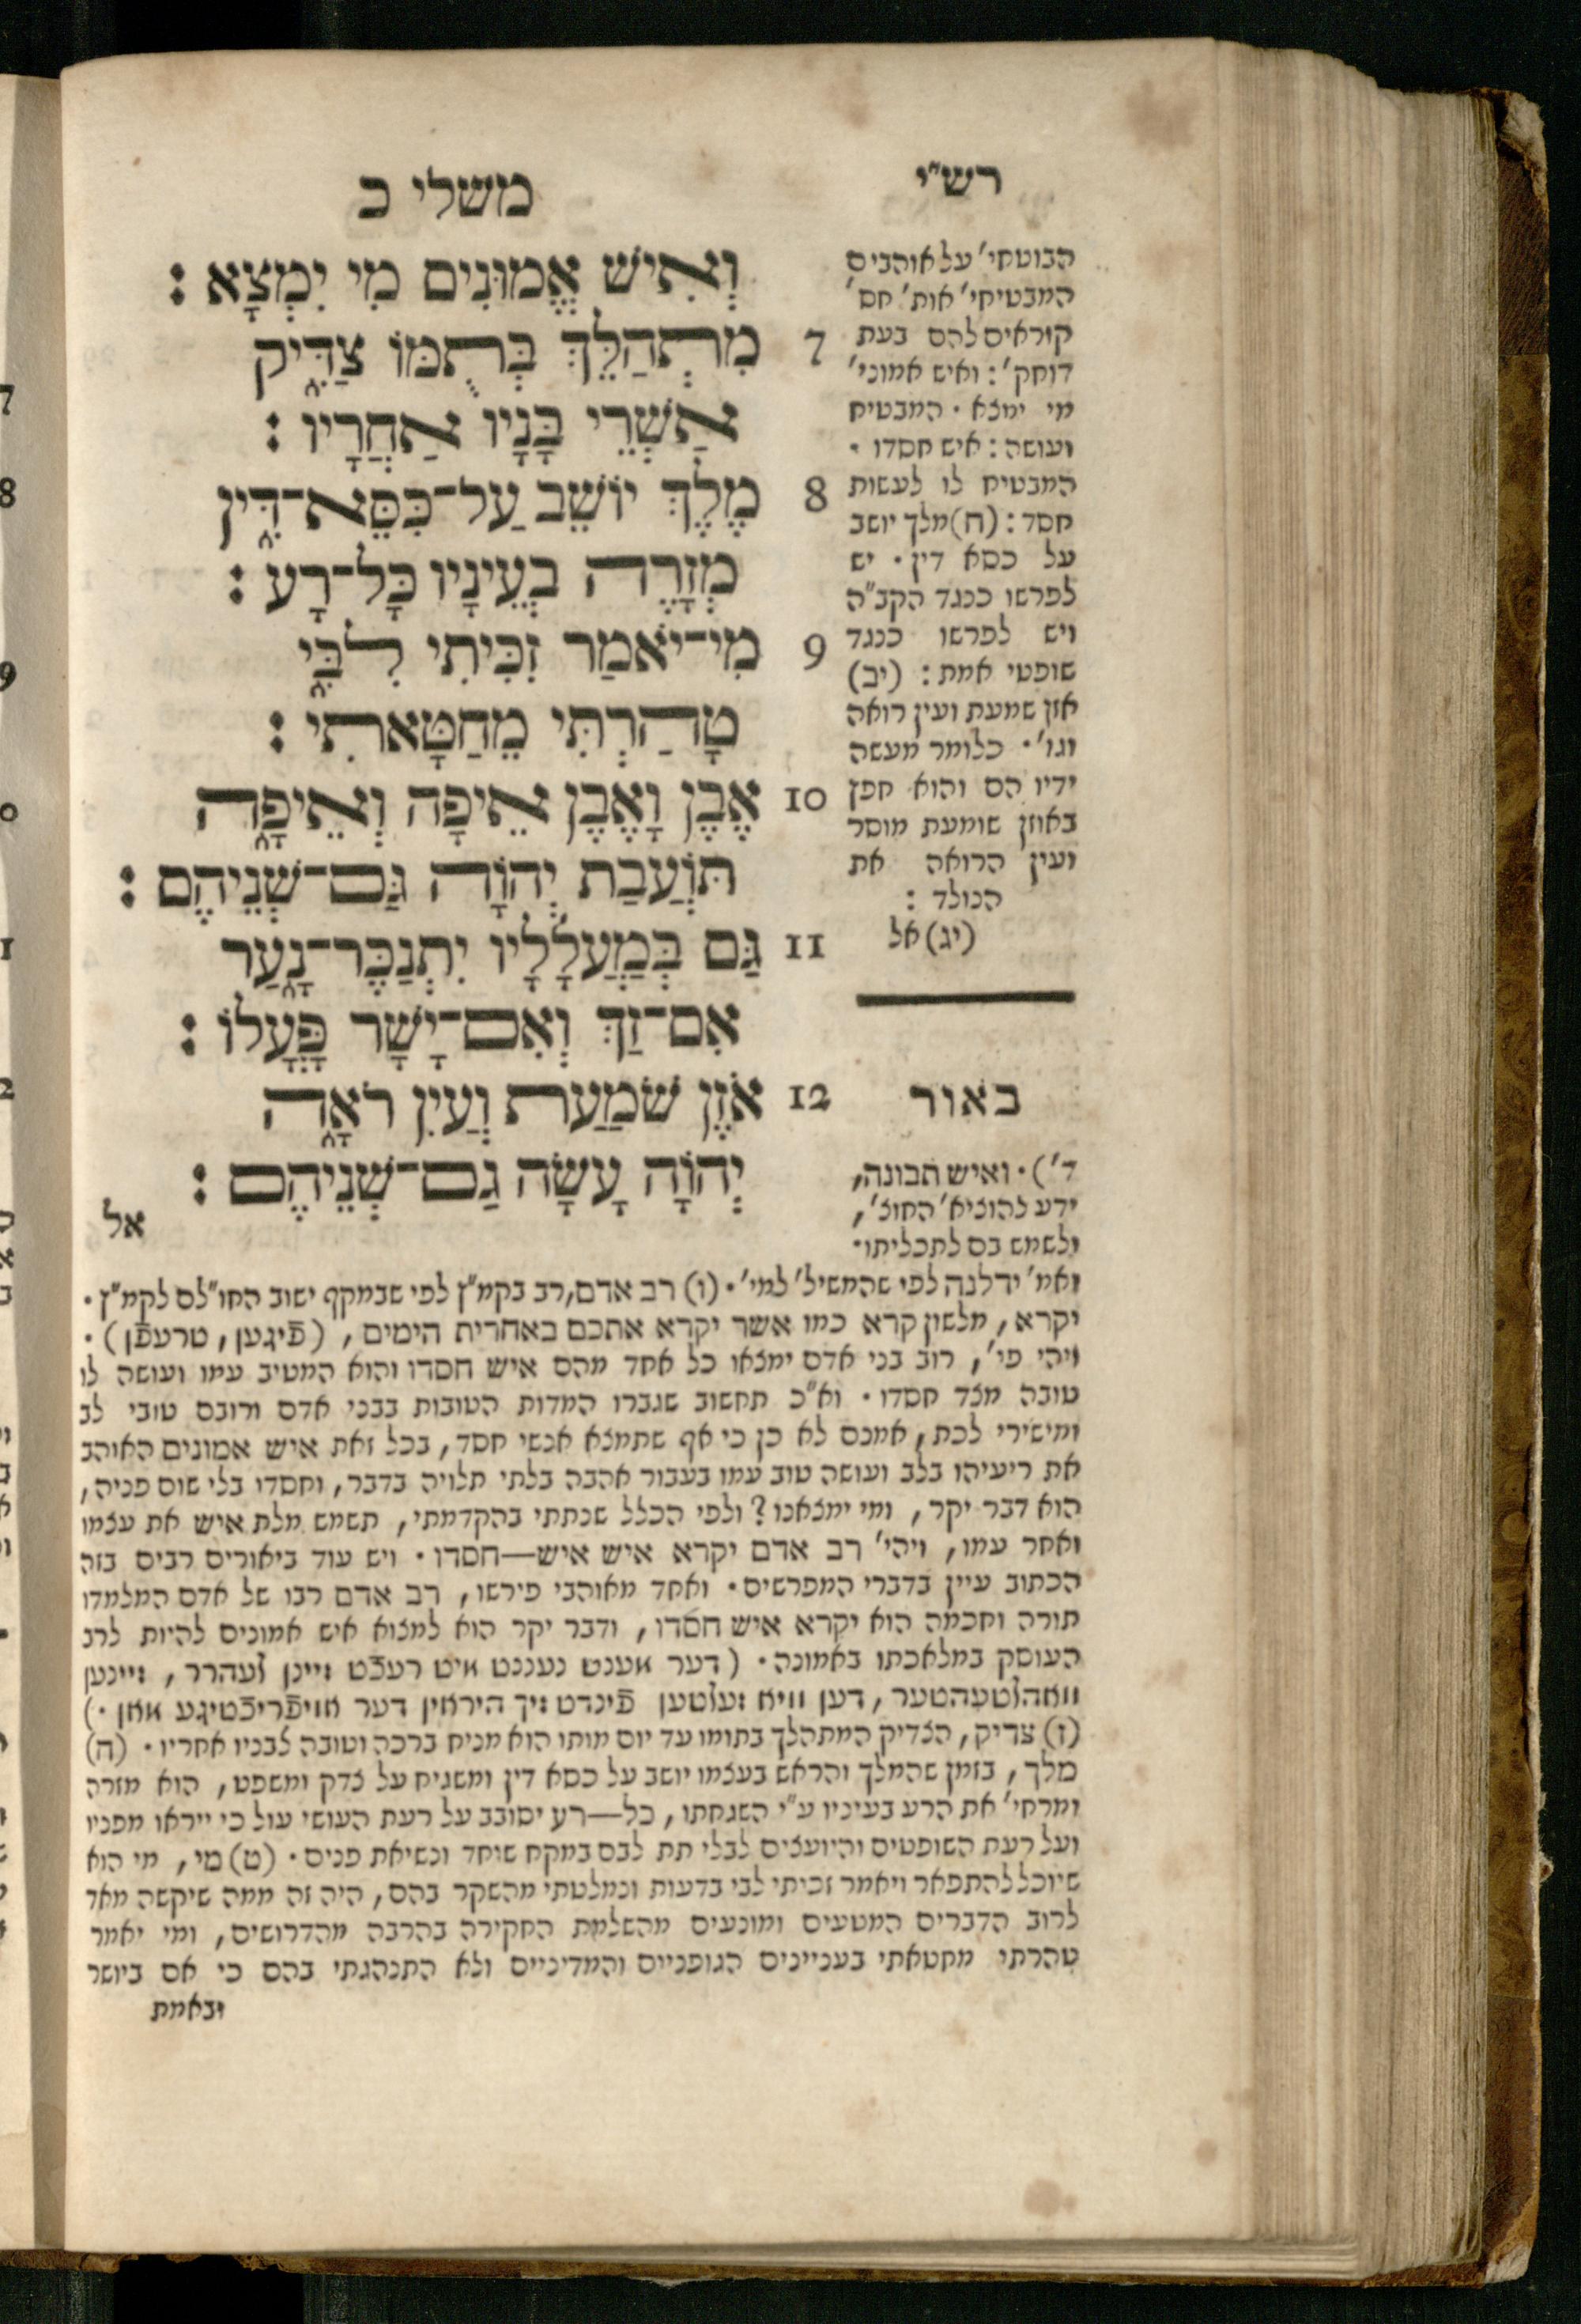 רש״י
משלי כ
וְאִישׁ אֱמוּנִים מִי יִמְצָא :
7 מִתְהַלֵּךְ בְּתֻמּוֹ צַדִּיק
אַשְׁרֵי בָּנָיו אַחֲרָיו :
8 מֶלֶךְ יוֹשֵׁב עַל־כִּסֵּא־דִין
מְזָרֶה בְעֵינָיו כָּל־רָע :
9 מִי־יֹאמַר זִכִּיתִי לִבִּי
טָהַרְתִּי מֵחַטָּאתִי :
10 אֶבֶן וָאֶבֶן אֵיפָה וְאֵיפָה
תּוֹעֲבַת יְהוָֹה גַּם־שְׁנֵיהֶם :
11 גַּם בְּמַעֲלָלָיו יִתְנַכֶּר־נָעַר
אִם־זַךְ וְאִם־יָשָׁר פָּעֳלוֹ :
12 אֹזֶן שֹׁמַעַת וְעַיִן רֹאָה
יְהוָֹה עָשָׂה גַם־שְׁנֵיהֶם :
אל
הבוטחי׳ על אוהבים
המבטיחי׳ אות׳ חס׳
קוראים להם בעת
דוחק׳ : ואיש אמוני׳
מי ימצא · המבטיח
ועושה : איש חסדו ·
המבטיח לו לעשות
חסד : (ח) מלך יושב
על כסא דין · יש
לפרשו כנגד הקב״ה
ויש לפרשו כנגד
שופטי אמת : (יב)
אזן שמעת ועין רואה
וגו׳ · כלומר מעשה
ידיו הם והוא חפץ
באוזן שומעת מוסר
ועין הרואה את
הנולד :
(יג) אל
באור
ד׳) · ואיש תבונה,
ידע להוציא׳ החוצ׳,
ולשמש בם לתכליתו ·
ואמ׳ ידלנה לפי שהמשיל׳ למי׳ · (ו) רב אדם, רב בקמ״ץ לפי שבמקף ישוב החו״לם לקמ״ץ ·
יקרא, מלשון קרא כמו אשר יקרא אתכם באחרית הימים, (פֿיגען, טרעפֿן) ·
ויהי פי׳, רוב בני אדם ימצאו כל אחד מהם איש חסדו והוא המטיב עמו ועושה לו
טובה מצד חסדו · וא״כ תחשוב שגברו המדות הטובות בבני אדם ורובם טובי לב
ומישירי לכת, אמנם לא כן כי אף שתמצא אנשי חסד, בכל זאת איש אמונים האוהב
את ריעיהו בלב ועושה טוב עמו בעבור אהבה בלתי תלויה בדבר, וחסדו בלי שום פניה,
הוא דבר יקר, ומי ימצאנו ? ולפי הכלל שנתתי בהקדמתי, תשמש מלת איש את עצמו
ואחר עמו, ויהי׳ רב אדם יקרא איש איש—חסדו · ויש עוד ביאורים רבים בזה
הכתוב עיין בדברי המפרשים · ואחד מאוהבי פירשו, רב אדם רבו של אדם המלמדו
תורה וחכמה הוא יקרא איש חסדו, ודבר יקר הוא למצוא איש אמונים להיות לרב
העוסק במלאכתו באמונה · (דער מענש נעננט מיט רעכֿט זיינן לעהרר, זיינען
וואהלטעהטער, דען וויא זעלטען פֿינדט זיך היראין דער אויפֿריכֿטיגע מאן ·)
(ז) צדיק, הצדיק המתהלך בתומו עד יום מותו הוא מניח ברכה וטובה לבניו אחריו · (ח)
מלך, בזמן שהמלך והראש בעצמו יושב על כסא דין ומשגיח על צדק ומשפט, הוא מזרה
ומרחי׳ את הרע בעיניו ע״י השגחתו, כל—רע יסובב על רעת העושי עול כי ייראו מפניו
ועל רעת השופטים והיועצים לבלי תת לבם במקח שוחד ונשיאת פנים · (ט) מי, מי הוא
שיוכל להתפאר ויאמר זכיתי לבי בדעות ונמלטתי מהשקר בהם, היה זה ממה שיקשה מאד
לרוב הדברים המטעים ומונעים מהשלמת החקירה בהרבה מהדרושים, ומי יאמר
טהרתי מחטאתי בעניינים הגופניים והמדיניים ולא התנהגתי בהם כי אם ביושר
ובאמת